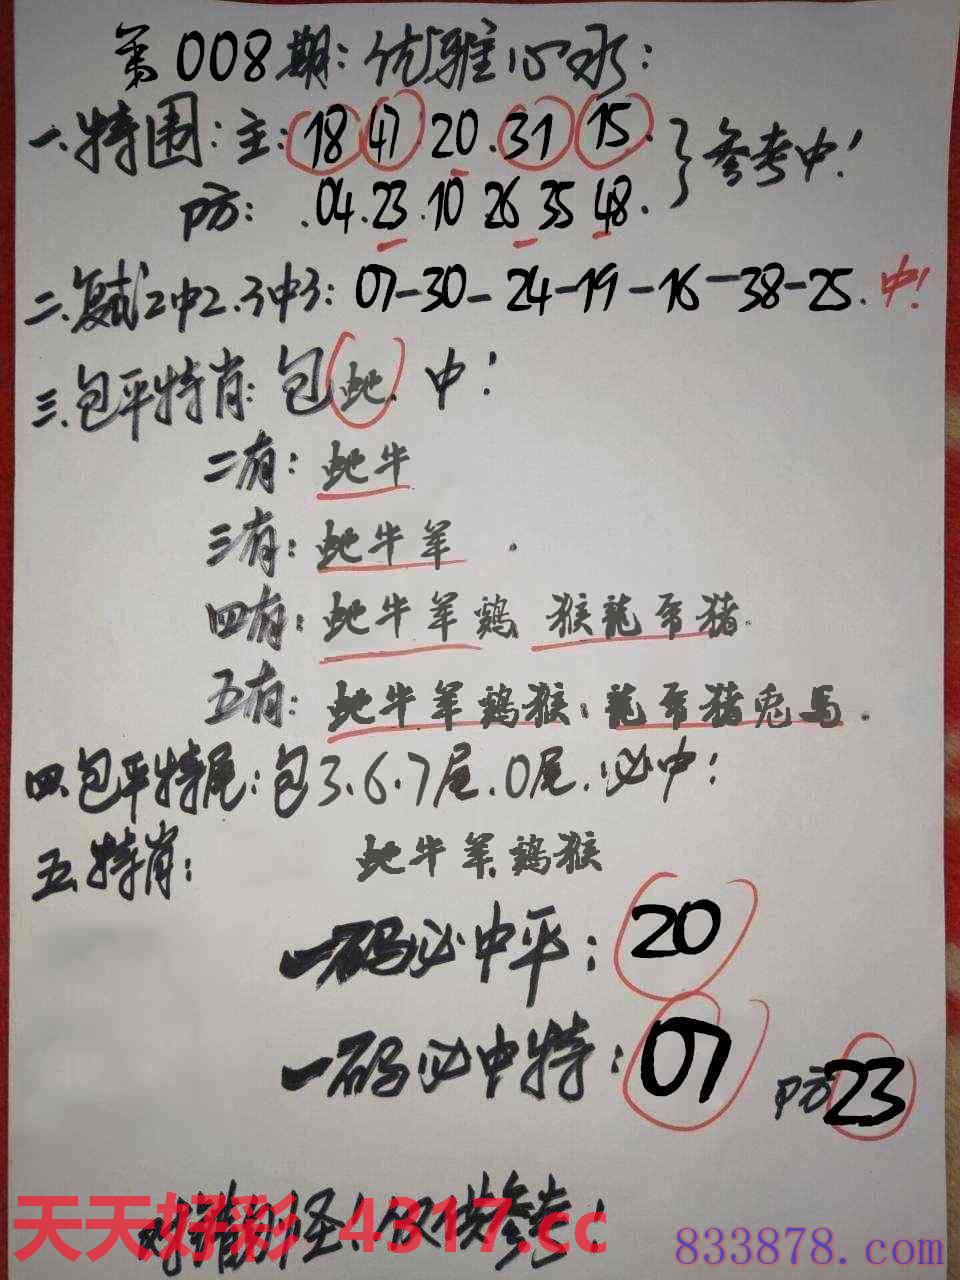 第008期:优雅心水:
一.特围:主:18 47 20.31 15. }参考中!
防: .04.23.10 26 35 48.
二.复试2中2.3中3: 07-30-24-19-16-38-25.中!
三.包平特肖:包蛇.中!
二有:蛇牛
三有:蛇牛羊.
四有:蛇牛羊鷄 猴龍帝猪.
五有:蛇牛羊鷄猴:龍帝猪兎馬.
四.包平特尾:包3.6.7尾.0尾.必中!
五.特肖: 蛇牛羊.鷄猴
一码必中平:20
一码必中特:07 防23
对错勿怪!仅供参考!
天天好彩 4317.cc
833878.com